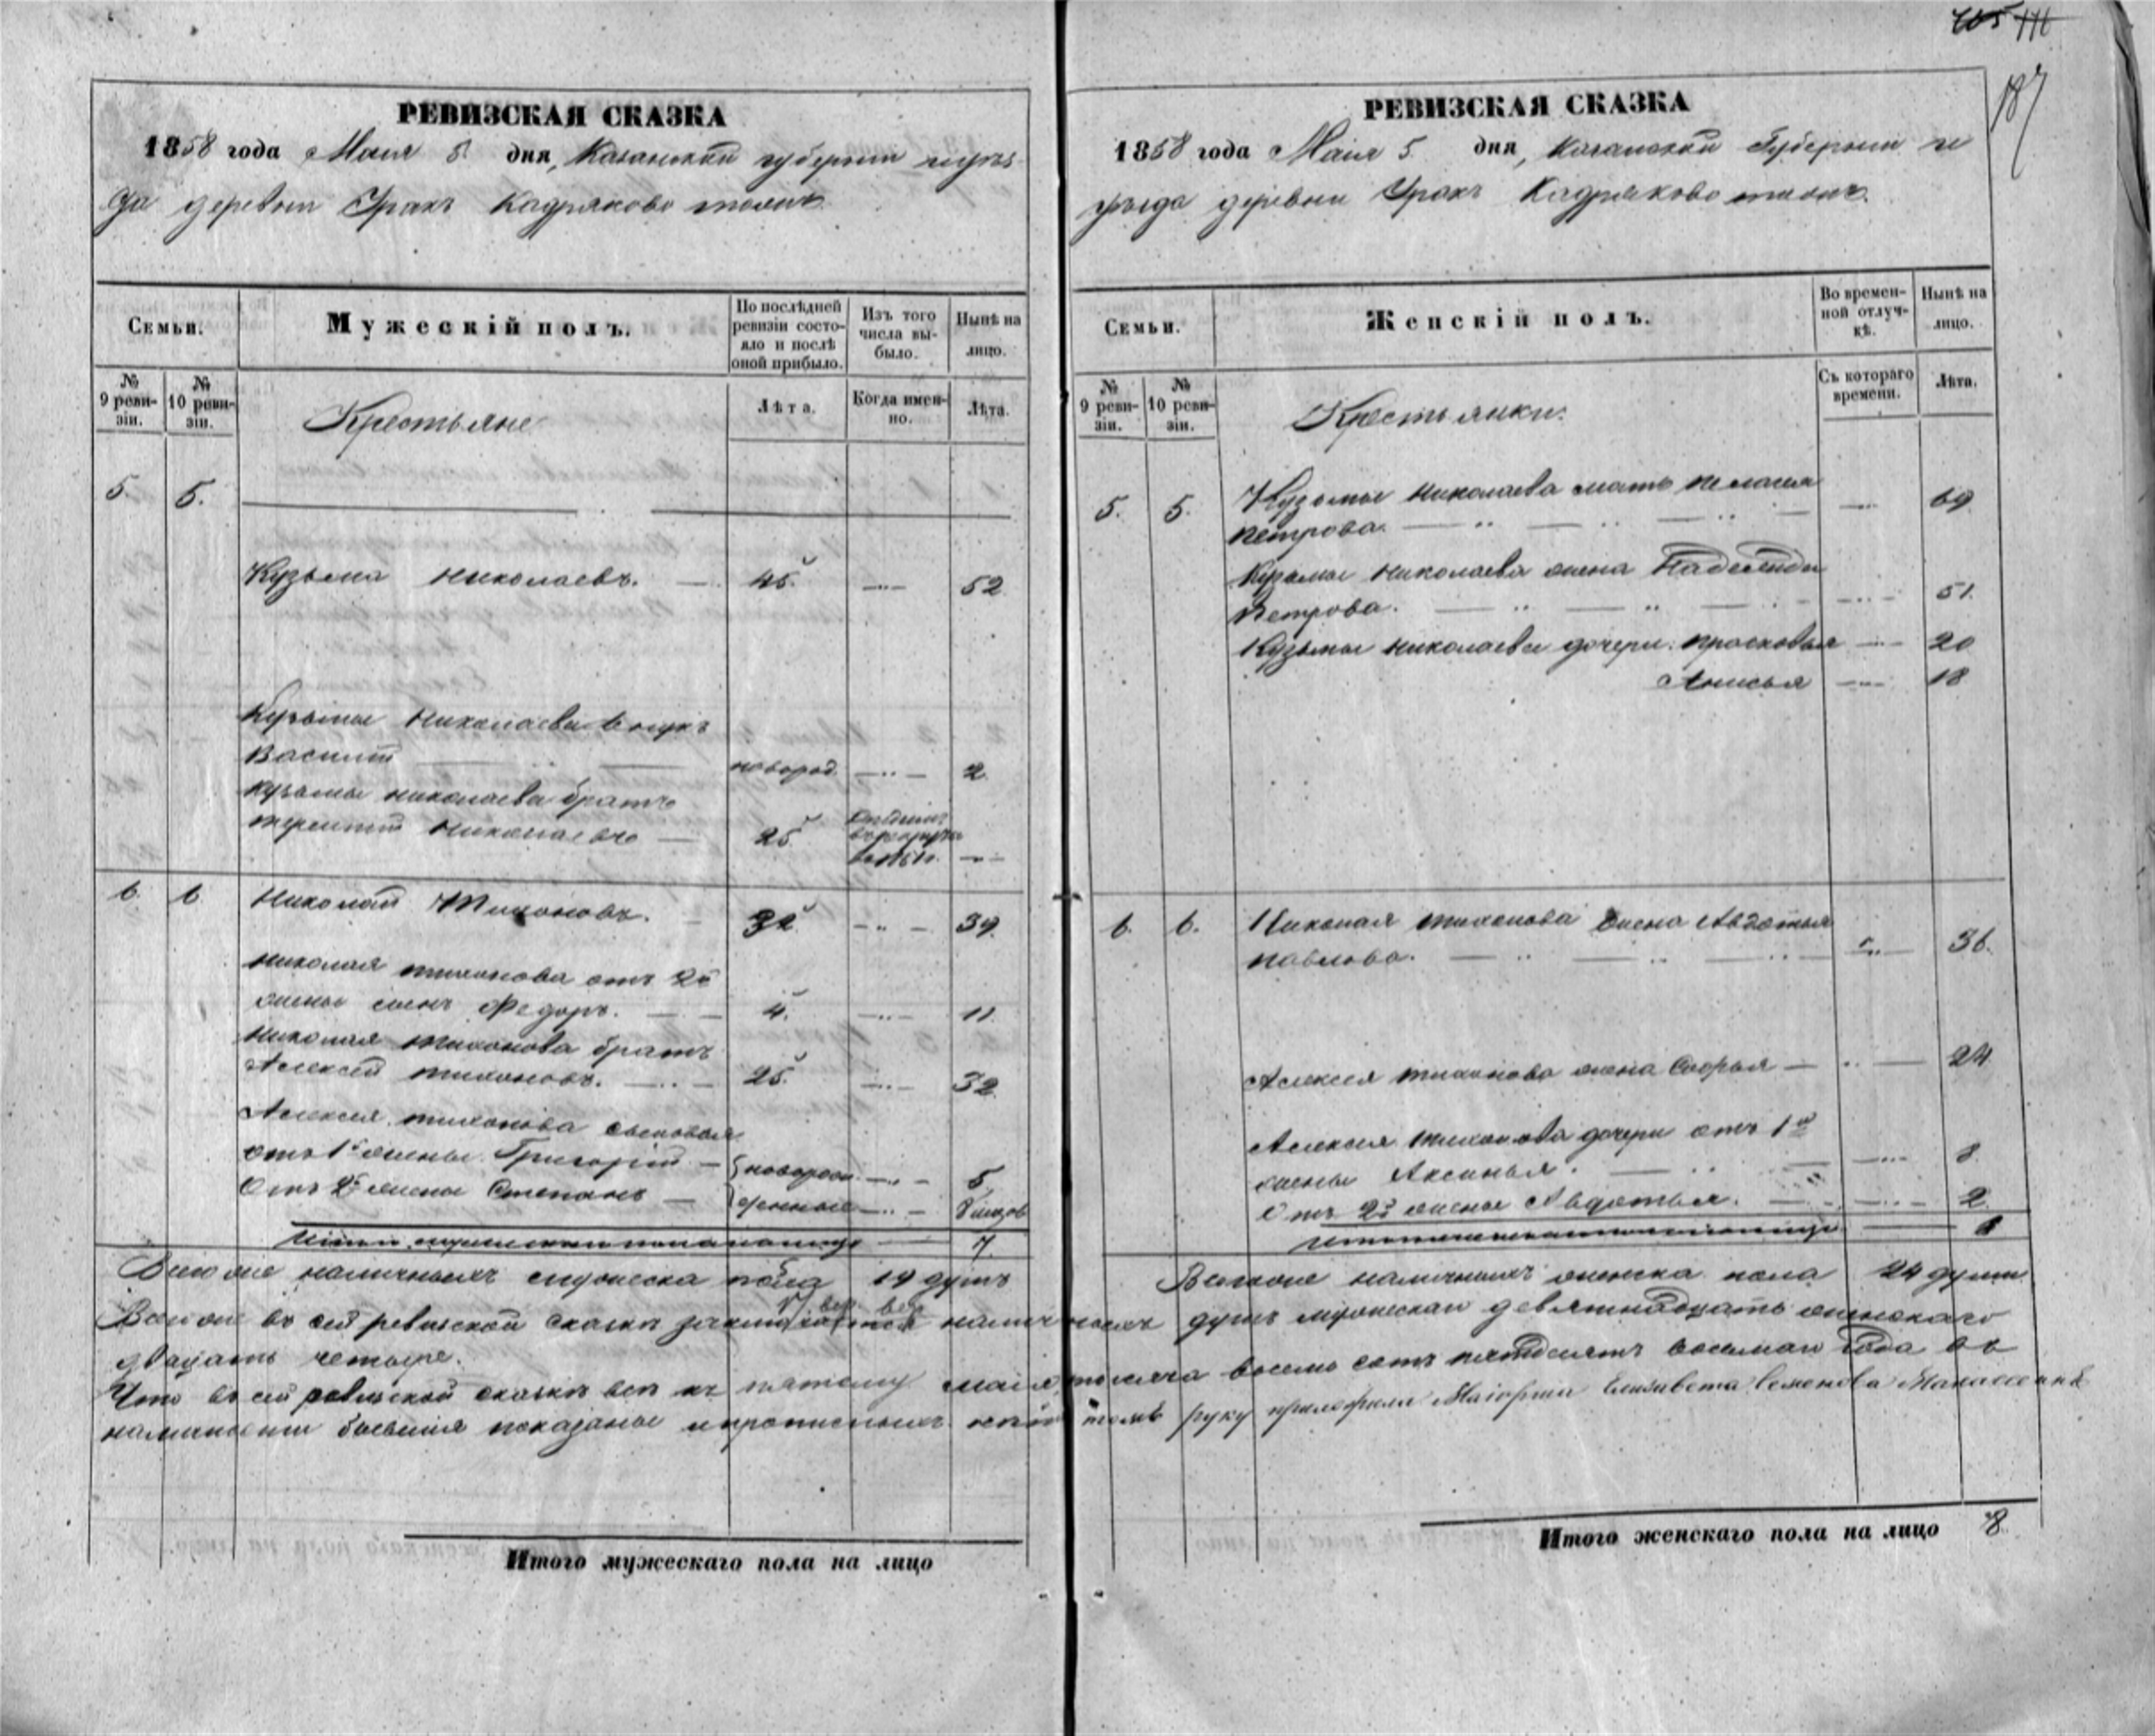 РЕВИЗСКАЯ СКАЗКА
1858 года Маия 5. дня, Казанской губернии
деревни Урахъ Кадряково тожъ
Семьи.
Мужескій полъ.
По послѣдней ревизіи состояло и послѣ оной прибыло.
Изъ того числа выбыло.
Нынѣ на лицо.
№ 9 ревизіи.
№ 10 ревизіи.
Крестьяне
Лѣта.
Когда именно.
Лѣта.
5. 5.
Кузьма Николаевъ. 45. 52
Кузьмы Николаева внукъ
Василій новород. 2.
Кузьмы Николаева братъ
Терентій Николаевъ 25
6. 6 Николай Тихоновъ. 32. 39.
Николая Тихонова отъ 2й
жены сынъ Федоръ. 4. 11.
Николая Тихонова братъ
Алексей Тихоновъ. 25. 32
Алексея Тихонова сыновья
отъ 1й жены Григорій новорож- 5
Отъ 2й жены Степанъ денные
7.
Всего же наличныхъ мужеска пола 19 душъ
РЕВИЗСКАЯ СКАЗКА
1858 года Маія 5. дня, Казанской Губерніи
уѣзда деревни Урахъ Кадряково тожъ.
Семьи.
Женскій полъ.
Во временной отлучкѣ.
Нынѣ на лицо.
№ 9 ревизіи.
№ 10 ревизіи.
Крестьянки.
Съ котораго времени.
Лѣта.
5. 5. Кузьмы Николаева мать Пелагея
Петрова. 69
Кузьмы Николаева жена Надежда
Петрова. 51.
Кузьмы Николаева дочери: Прасковья 20
Анисья 18
6. 6. Николая Тихонова жена Авдотья
Павлова. 36.
Алексея Тихонова жена Софья 24
Алексея Тихонова дочери отъ 1й
жены Аксинья. 8.
Отъ 2й жены Авдотья. 2.
Всего же наличныхъ женска пола 24 души
Всего же въ сей ревизской сказкѣ наличныхъ душъ мужескаго девятнадцать женскаго
двадцать четыре.
Что въ сей ревизской сказкѣ всѣ къ пятому маія тысяча восемь сотъ пятдесятъ восьмаго года въ
наличности бывшія показаны и прописныхъ нѣтъ въ томъ руку приложила Маіорша Елизавета Семенова
Итого мужескаго пола на лицо
Итого женскаго пола на лицо 8.
187